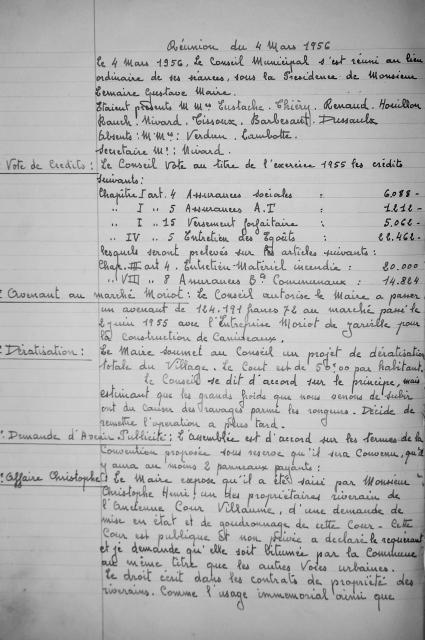 Réunion du 4 Mars 1956
Le 4 Mars 1956, Le Conseil Municipal s'est réuni au lieu
ordinaire de ses séances, sous la Présidence de Monsieur
Lemaire Gustave Maire.
Etaient présents M Mrs Eustache. Thiéry. Renaud. Houillon
Bauch. Nivard. Tissoux. Barbesant. Dussaulx
Absents: M Mrs: Verdun. Lambotte.
Secrétaire Mr: Nivard.
Vote de Crédits: Le Conseil Vote au titre de l'exercice 1955 les crédits
suivants:
Chapitre I art. 4 Assurances sociales : 6.088 -
" I " 5 Assurances A.T : 1.212 -
" I " 15 Versement forfaitaire : 5.062 -
" IV " 5 Entretien des Egoûts : 22.462 -
lesquels seront prélevés sur les articles suivants:
Chap. III art 4. Entretien Matériel incendie : 20.000
" VIII " 8 Assurances Bts Communaux : 14.824
Avenant au marché Moriot: Le Conseil autorise le Maire a passer
un avenant de 124.191 francs 72 au marché passé le
2 juin 1955 avec l'Entreprise Moriot de Jarville pour
la Construction de Caniveaux.
Dératisation: Le Maire soumet au Conseil un projet de dératisation
totale du Village. Le Coût est de 50,00 par habitant.
Le Conseil se dit d'accord sur le principe, mais
estimant que les grands froids que nous venons de subir
ont du causer des ravages parmi les rongeurs. Décide de
remettre l'opération a plus tard.
Demande d'Avenir Publicité: L'assemblée est d'accord sur les termes de la
Convention proposée sous réserve qu'il sera Convenu, qu'il
y aura au moins 2 panneaux payants:
Affaire Christophe: Le Maire expose qu'il a été saisi par Monsieur
Christophe Henri, un des propriétaires riverain de
l'Ancienne Cour Villaume, d'une demande de
mise en état et de goudronnage de cette Cour. Cette
Cour est publique et non privée a déclaré le requérant
et je demande qu'elle soit bitumée par la Commune
au même titre que les autres Voies urbaines.
Le droit écrit dans les contrats de propriété des
riverains. Comme l'usage immémorial ainsi que